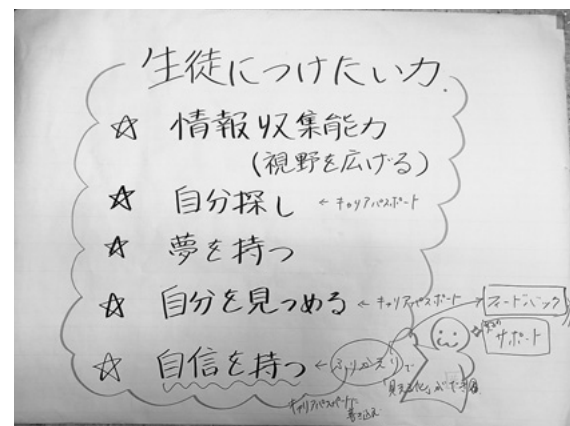 生徒につけたい力
☆ 情報収集能力
(視野を広げる)
☆ 自分探し ← キャリアパスポート
☆ 夢を持つ
☆ 自分を見つめる ← キャリアパスポート → フィードバック
サポート
☆ 自信を持つ ← ふりかえりで
「見える化」ができ
キャリアパスポートに
書き込む